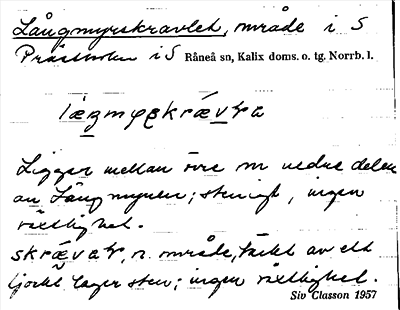 Långmyrskravlet, område i S
Prästholm i S Råneå sn, Kalix doms. o. tg. Norrb. l.
Ligger mellan övre o nedre delen
av Långmyren; stenigt, ingen
växtlighet.
n. område, täckt av ett
tjockt lager sten; ingen växtlighet.
Siv Classon 1957